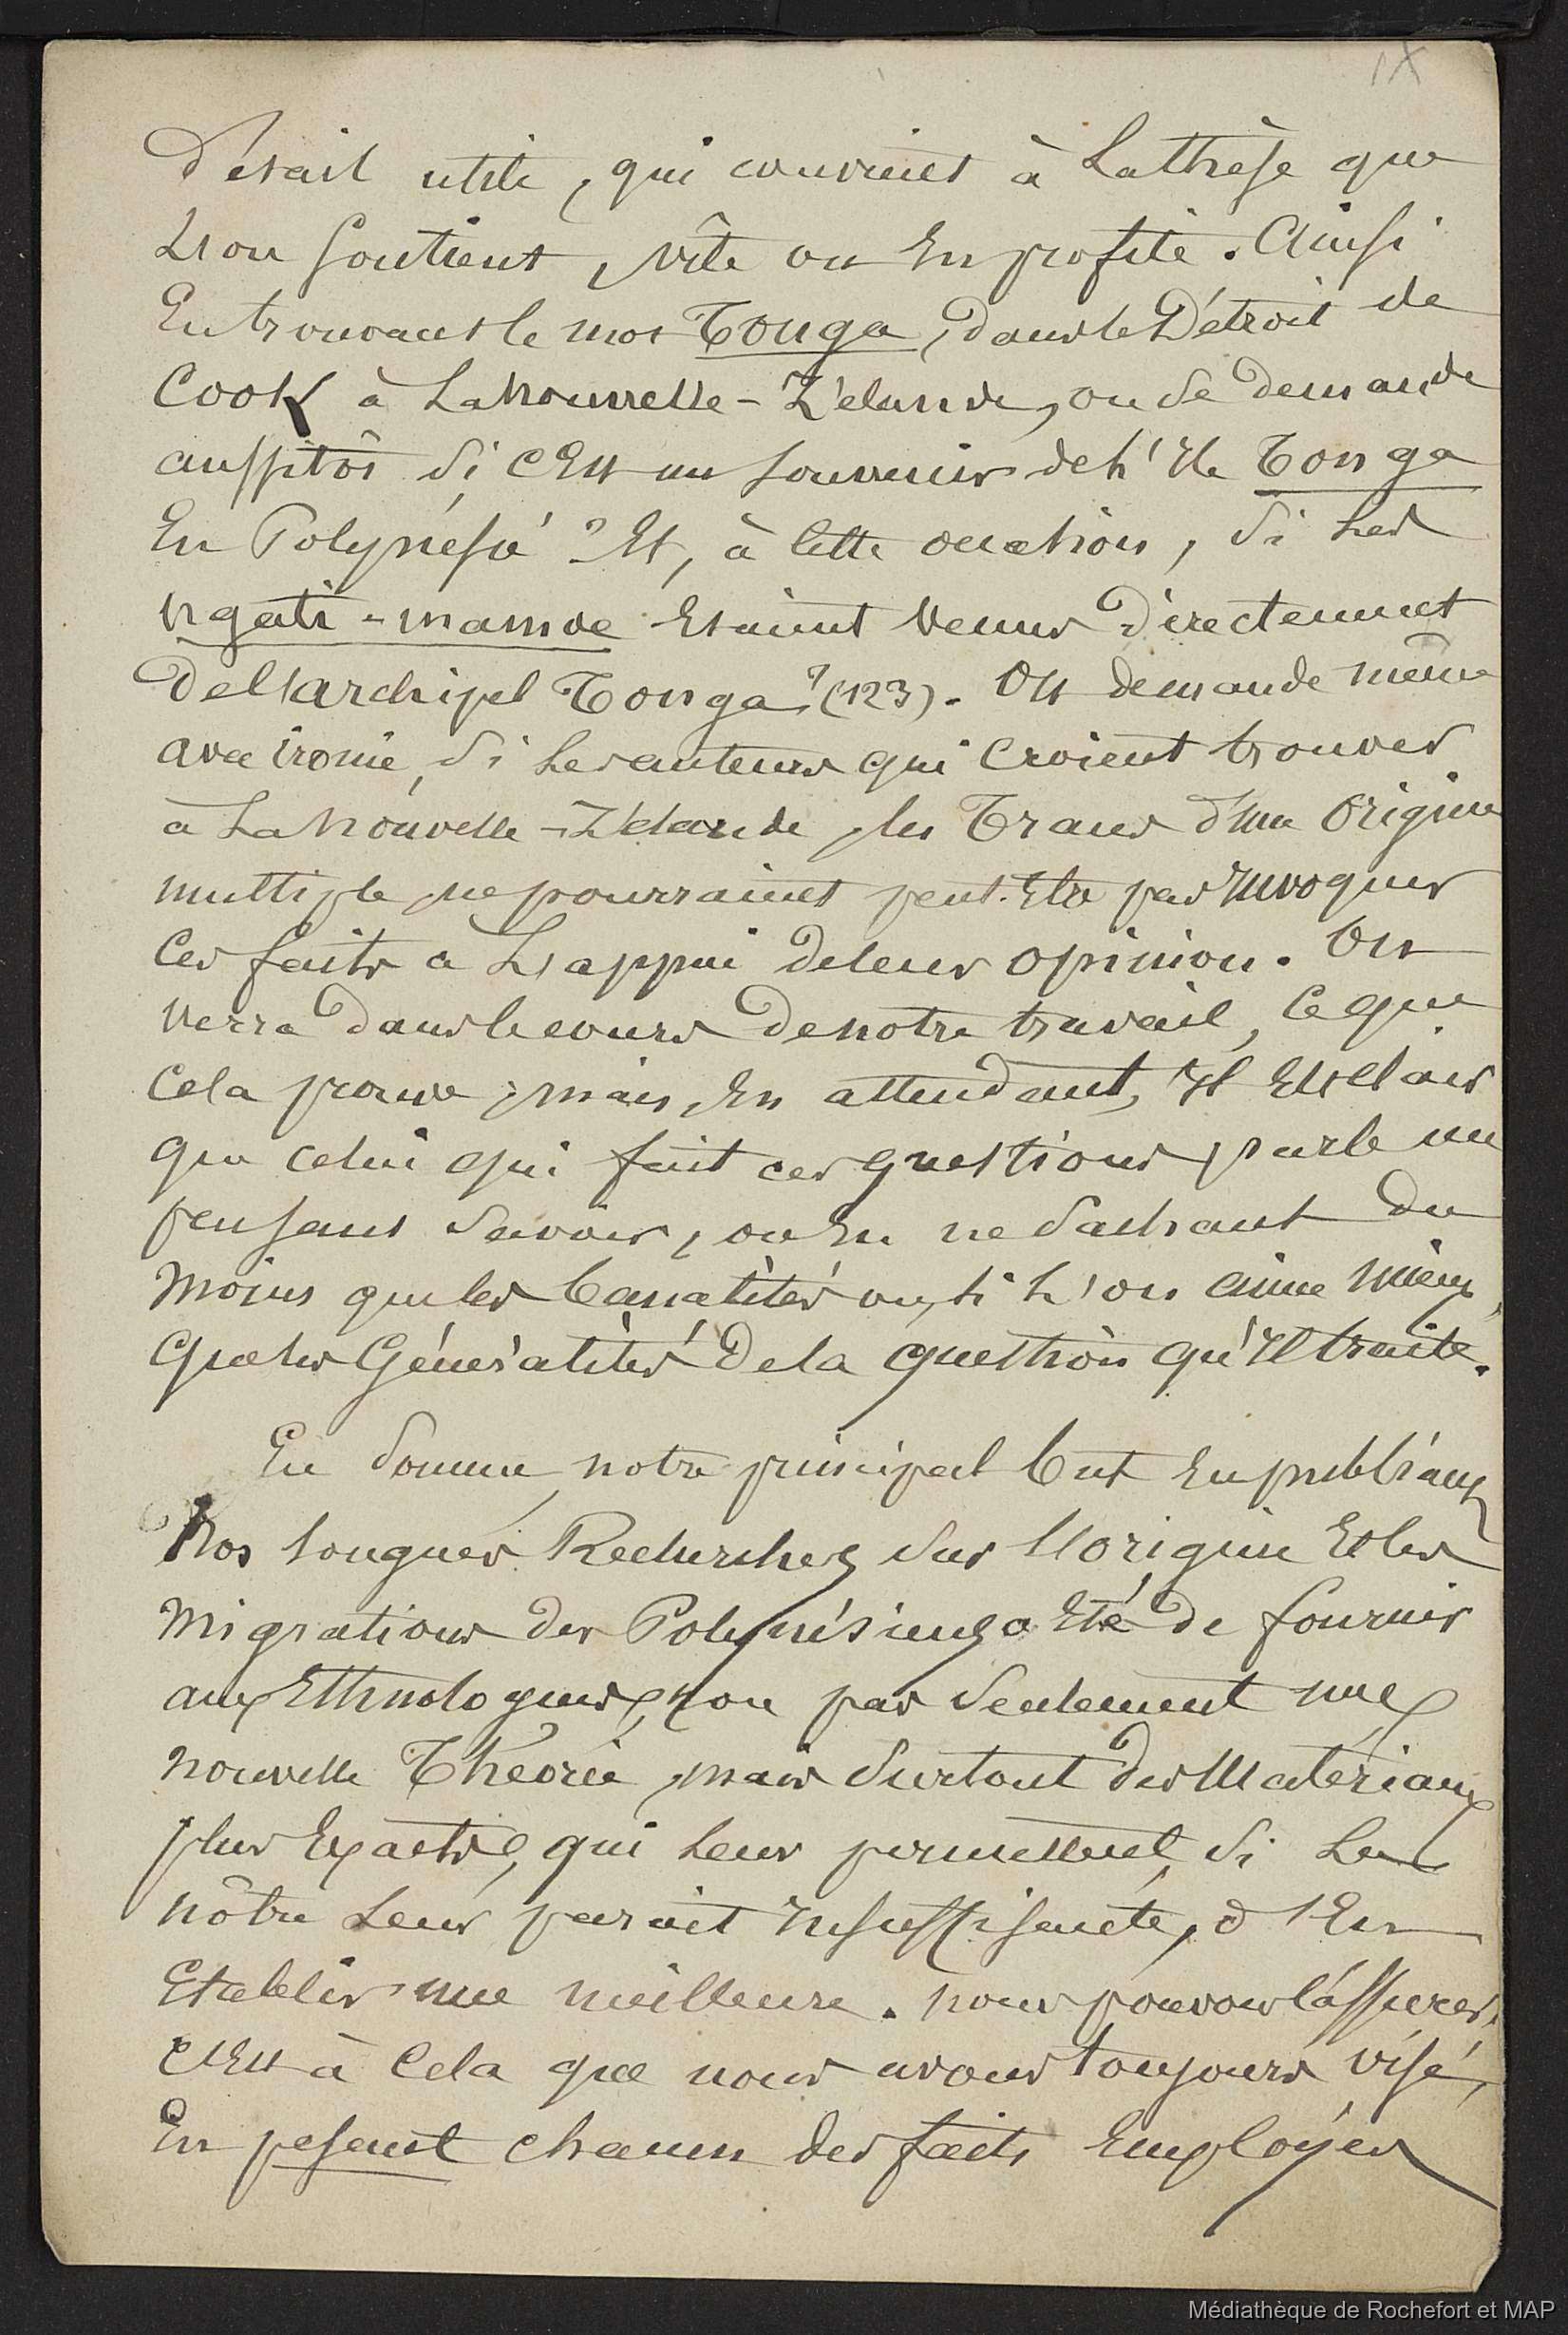 IX
Détail utile, qui convient à la thèse que
l'on soutient, vite on en profite. Ainsi
En trouvant le mot Tonga, dans le Détroit de
Cook à la Nouvelle-Zélande, on se demande
aussitôt si c'Est un souvenir de l'Ile Tonga
En Polynésie ? Et, à cette occasion, si les
Ngati-mamoe Etaient venus Directement
De l'archipel Tonga ? (123). On demande même
avec ironie, si les auteurs qui Croient trouver
à La Nouvelle-Zélande, les Traces d'une Origine
multiple, ne pourraient peut-Etre pas Invoquer
Ces faits à L'appui de leur opinion. On
verra dans le cours de notre travail, Ce que
Cela prouve ; mais, En attendant, Il Est Clair
que celui qui fait ces questions, parle un
peu sans savoir, ou En ne sachant Du
moins que les banalités ou, si l'on aime mieux,
que les Généralités De la question qu'Il traite.
En somme, notre principal but En publiant
Nos longues Recherches sur l'origine Et les
Migrations des Polynésiens, a Eté de fournir
aux Ethnologues, non pas seulement une
nouvelle Théorie, mais surtout des Matériaux
plus Exacts, qui leur permettent, si la
nôtre leur parait Insuffisante, d'En
Etablir une meilleure. Nous pouvons l'assurer,
c'Est à Cela que nous avons toujours visé,
En pesant chacun des faits Employés
Médiathèque de Rochefort et MAP